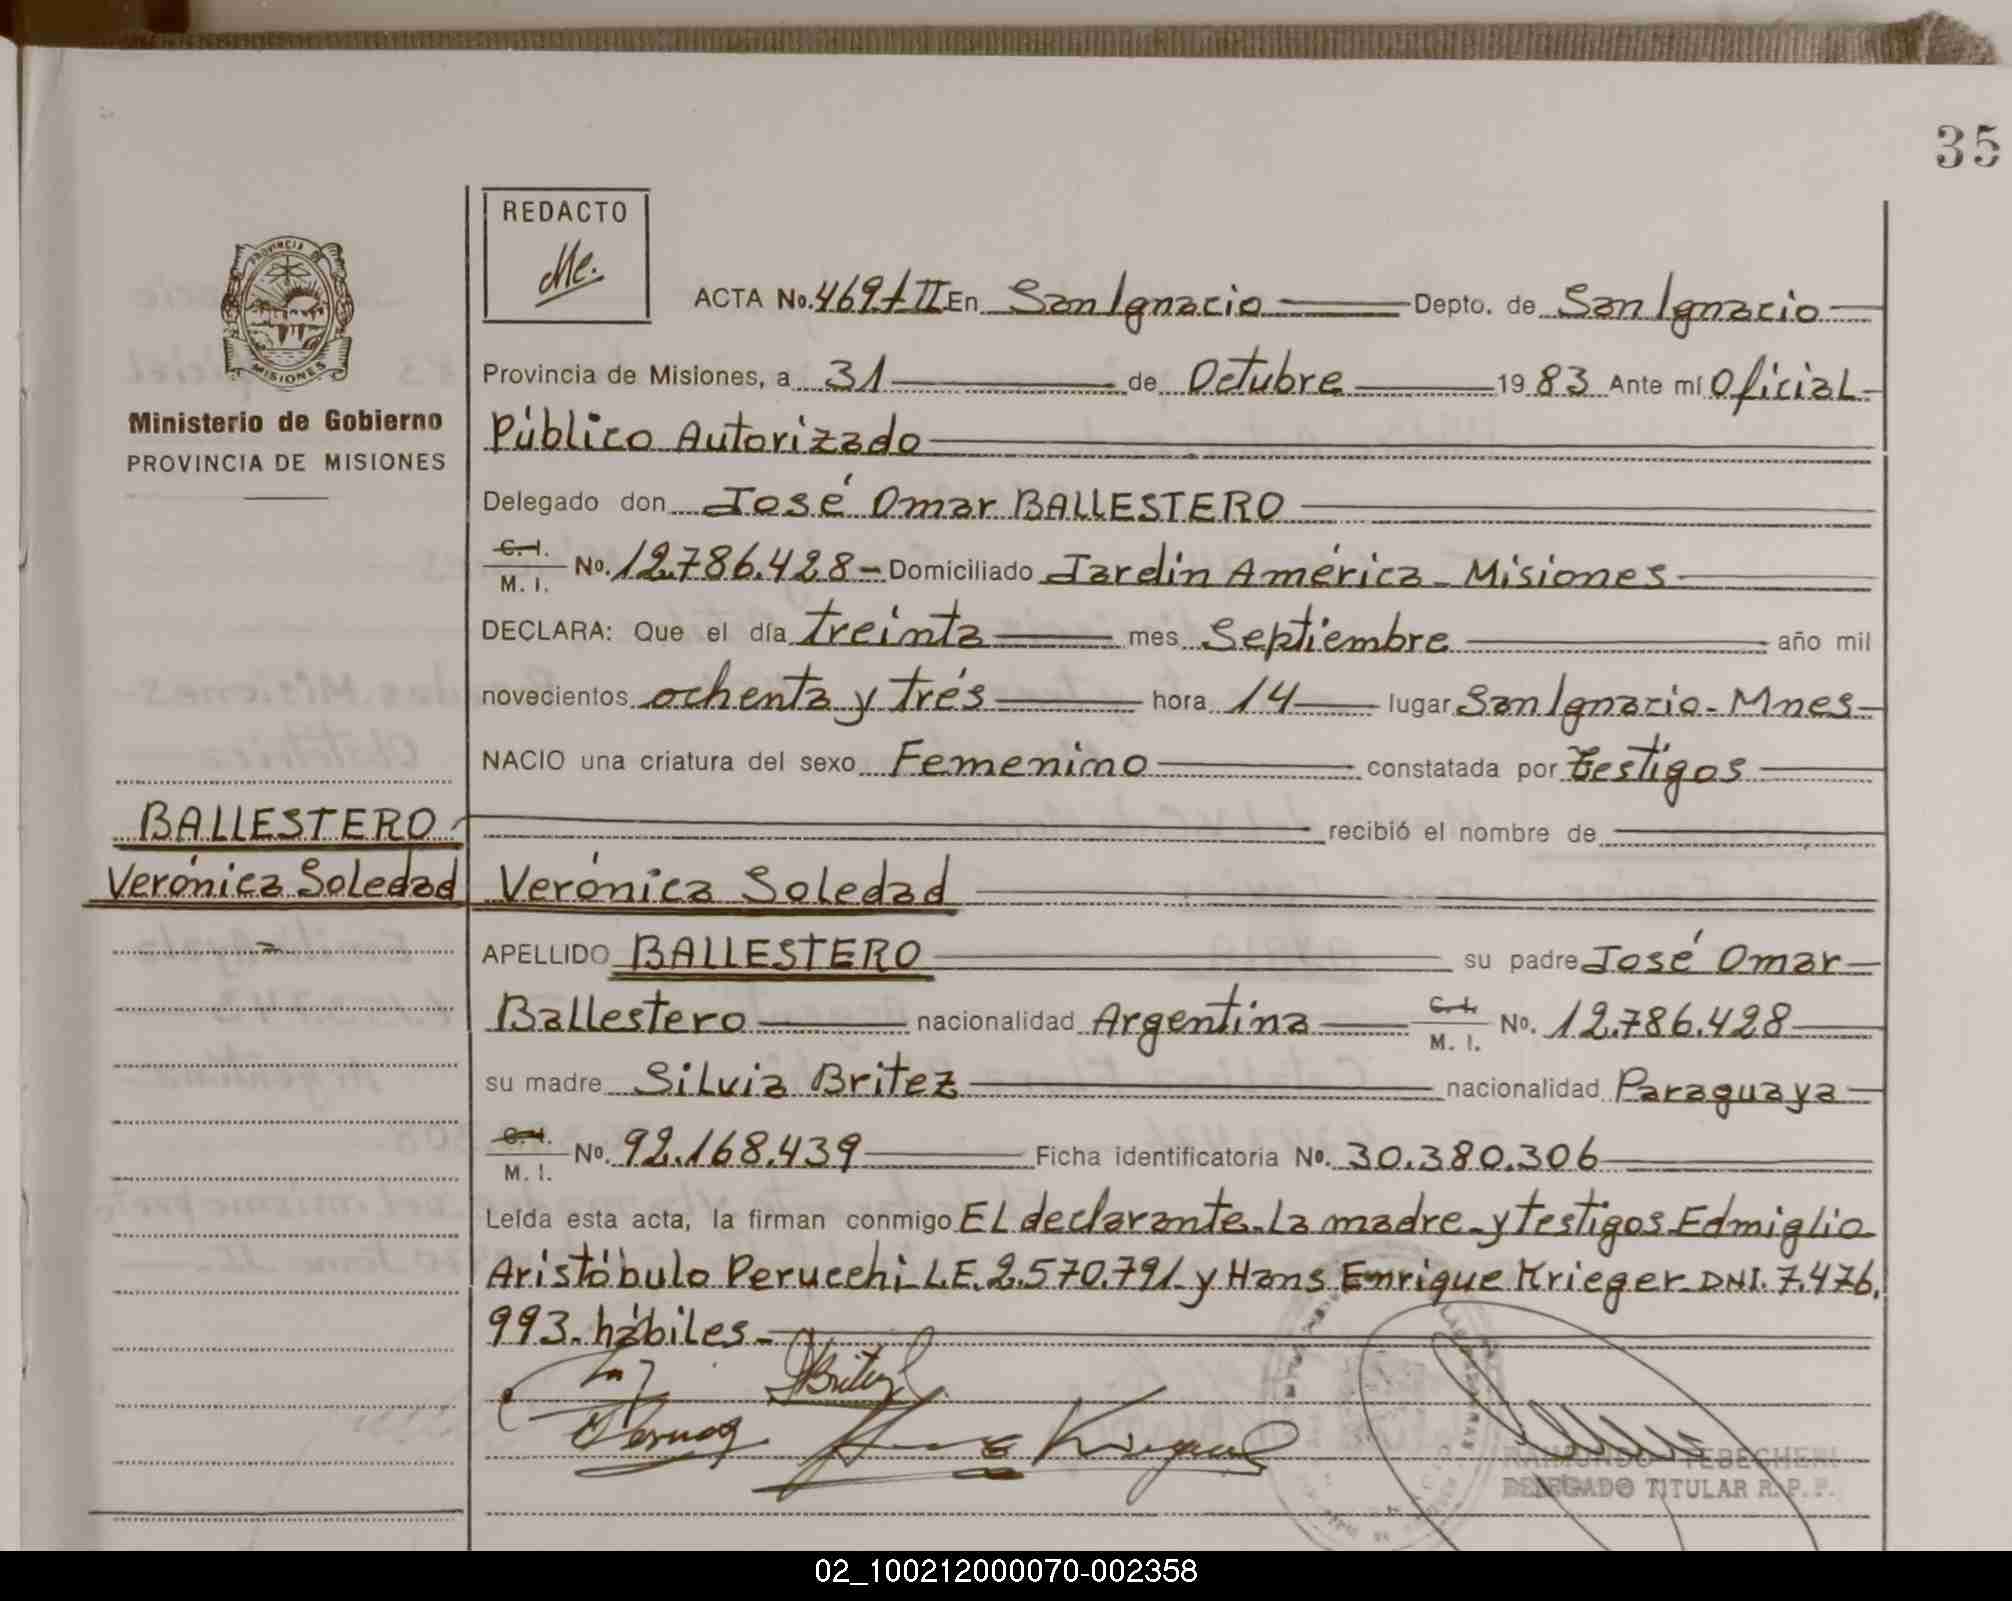 35
REDACTO
Me.
PROVINCIA
MISIONES
Ministerio de Gobierno
PROVINCIA DE MISIONES
ACTA No. 469 t II En San Ignacio Depto. de San Ignacio
Provincia de Misiones, a 31 de Octubre 19 83 Ante mí Oficial
Público Autorizado
Delegado don José Omar BALLESTERO
C. I. / M. I. No. 12.786.428 - Domiciliado Jardín América - Misiones
DECLARA: Que el día treinta mes Septiembre año mil
novecientos ochenta y trés hora 14 lugar San Ignacio - Mnes
NACIO una criatura del sexo Femenino constatada por testigos
BALLESTERO recibió el nombre de
Verónica Soledad Verónica Soledad
APELLIDO BALLESTERO su padre José Omar
Ballestero nacionalidad Argentina C. I. / M. I. No. 12.786.428
su madre Silvia Britez nacionalidad Paraguaya
C. I. / M. I. No. 92.168.439 Ficha identificatoria No. 30.380.306
Leída esta acta, la firman conmigo El declarante - La madre - y testigos Edmiglio
Aristóbulo Perucchi L.E. 2.570.791 y Hans Enrique Krieger DNI. 7.476.
993 - hábiles -
SBritez
RAIMUNDO TEBECHERI
DELEGADO TITULAR R. P. P.
02_100212000070-002358